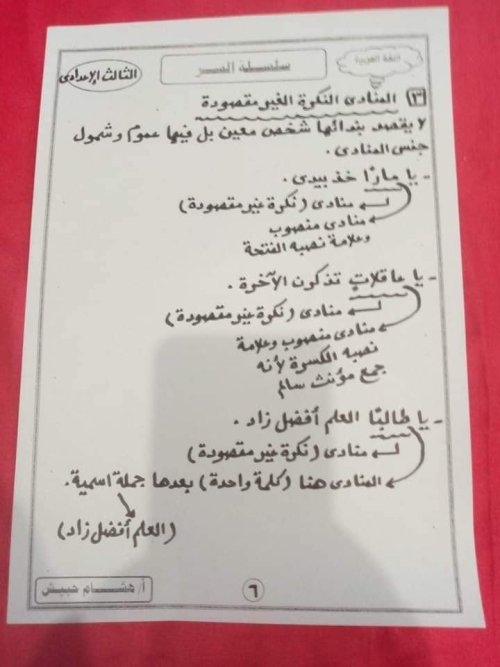 اللغة العربية
سلسلة السر
الثالث الإعدادى
٣ المنادى النكرة الغير مقصودة
لا يقصد بندائها شخص معين بل فيها عموم وشمول
جنس المنادى .
- يا مارًا خذ بيدى .
منادى (نكرة غير مقصودة)
منادى منصوب
وعلامة نصبه الفتحة
- يا عاقلاتٍ تذكرن الآخرة .
منادى (نكرة غير مقصودة)
منادى منصوب وعلامة
نصبه الكسرة لأنه
جمع مؤنث سالم
- يا طالبًا العلم أفضل زاد .
منادى (نكرة غير مقصودة)
المنادى هنا (كلمة واحدة) بعدها جملة اسمية .
(العلم أفضل زاد)
٦
أ/ هشام حبيش